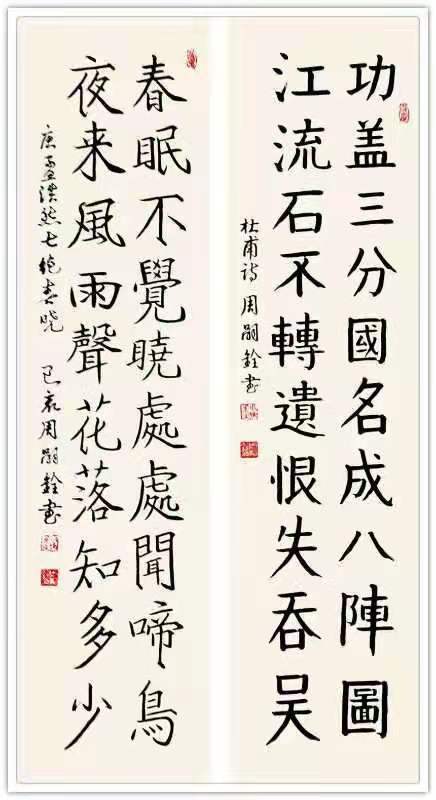 功盖三分國名成八陣圖
江流石不轉遺恨失吞吴
杜甫诗 周嗣銓書
春眠不覺曉處處聞啼鳥
夜来風雨聲花落知多少
唐孟浩然七绝春晓 己亥周嗣銓書